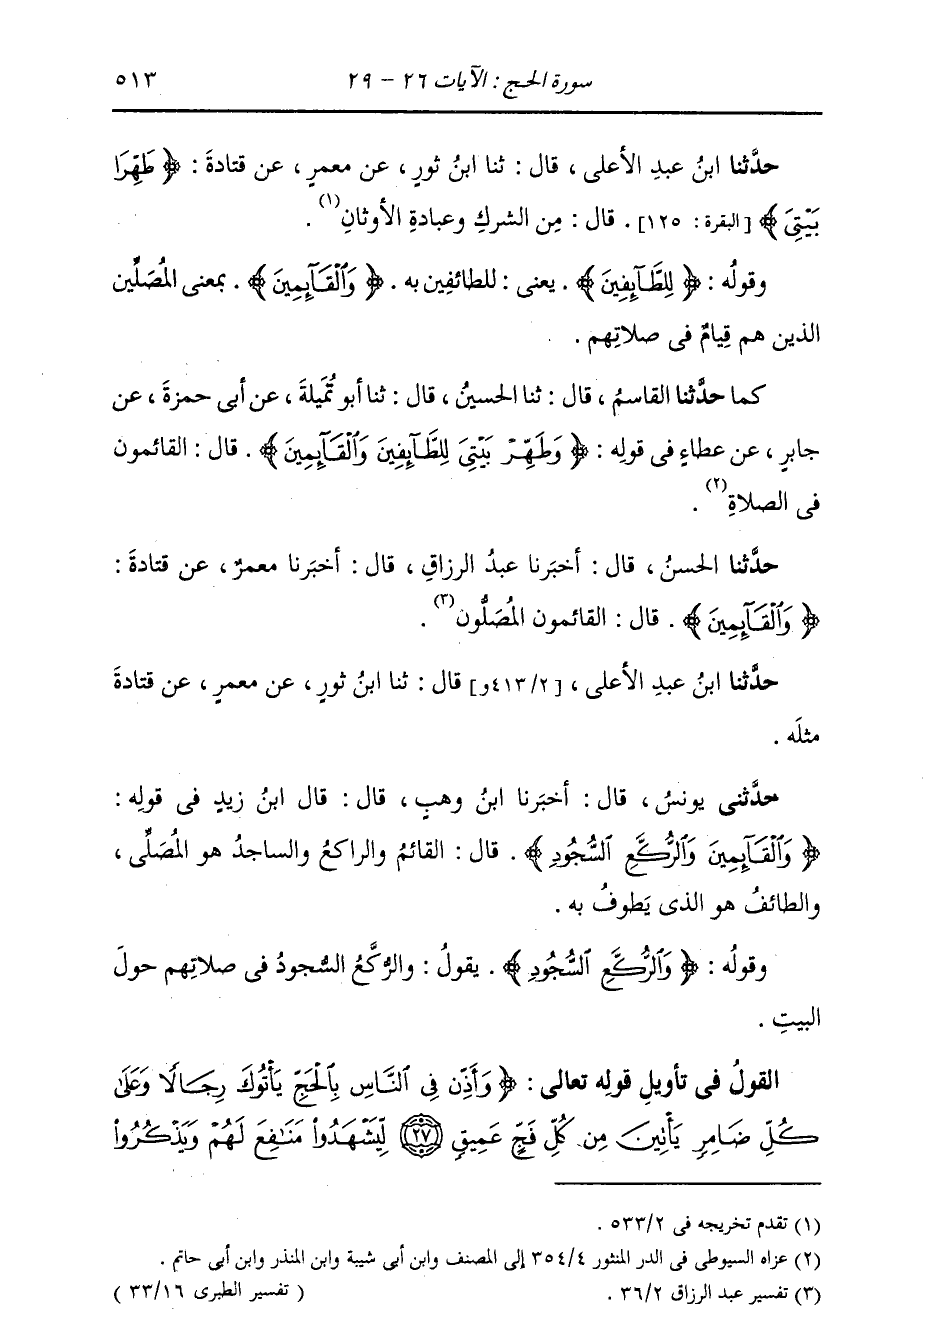 سورة الحج : الآيات ٢٦ - ٢٩ ٥١٣
حدَّثنا ابنُ عبدِ الأعلى ، قال : ثنا ابنُ ثورٍ ، عن معمرٍ ، عن قتادةَ : ﴿ طَهِّرَا
بَيْتِيَ ﴾ [ البقرة : ١٢٥] . قال : مِن الشركِ وعبادةِ الأوثانِ(١) .
وقولُه : ﴿ لِلطَّآيِفِينَ ﴾ . يعنى : للطائفِين به . ﴿ وَٱلْقَآيِمِينَ ﴾ . بمعنى المُصَلِّين
الذين هم قِيامٌ فى صلاتِهم .
كما حدَّثنا القاسمُ ، قال : ثنا الحسينُ ، قال : ثنا أبو تُمَيلةَ ، عن أبى حمزةَ ، عن
جابرٍ ، عن عطاءٍ فى قولِه : ﴿ وَطَهِّرْ بَيْتِيَ لِلطَّآيِفِينَ وَٱلْقَآيِمِينَ ﴾ . قال : القائمون
فى الصلاةِ(٢) .
حدَّثنا الحسنُ ، قال : أخبَرنا عبدُ الرزاقِ ، قال : أخبَرنا معمرٌ ، عن قتادةَ :
﴿ وَٱلْقَآيِمِينَ ﴾ . قال : القائمون المُصَلُّون(٣) .
حدَّثنا ابنُ عبدِ الأعلى ، [٤١٣/٢و] قال : ثنا ابنُ ثورٍ ، عن معمرٍ ، عن قتادةَ
مثلَه .
حدَّثنى يونسُ ، قال : أخبَرنا ابنُ وهبٍ ، قال : قال ابنُ زيدٍ فى قولِه :
﴿ وَٱلْقَآيِمِينَ وَٱلرُّكَّعِ ٱلسُّجُودِ ﴾ . قال : القائمُ والراكعُ والساجدُ هو المُصَلِّى ،
والطائفُ هو الذى يَطوفُ به .
وقولُه : ﴿ وَٱلرُّكَّعِ ٱلسُّجُودِ ﴾ . يقولُ : والرُّكَّعُ السُّجودُ فى صلاتِهم حولَ
البيتِ .
القولُ فى تأويلِ قولِه تعالى : ﴿ وَأَذِّن فِى ٱلنَّاسِ بِٱلْحَجِّ يَأْتُوكَ رِجَالًا وَعَلَىٰ
كُلِّ ضَامِرٍ يَأْتِينَ مِن كُلِّ فَجٍّ عَمِيقٍ ٢٧ لِّيَشْهَدُوا۟ مَنَـٰفِعَ لَهُمْ وَيَذْكُرُوا۟
(١) تقدم تخريجه فى ٥٣٣/٢ .
(٢) عزاه السيوطى فى الدر المنثور ٣٥٤/٤ إلى المصنف وابن أبى شيبة وابن المنذر وابن أبى حاتم .
(٣) تفسير عبد الرزاق ٣٦/٢ . ( تفسير الطبرى ٣٣/١٦ )